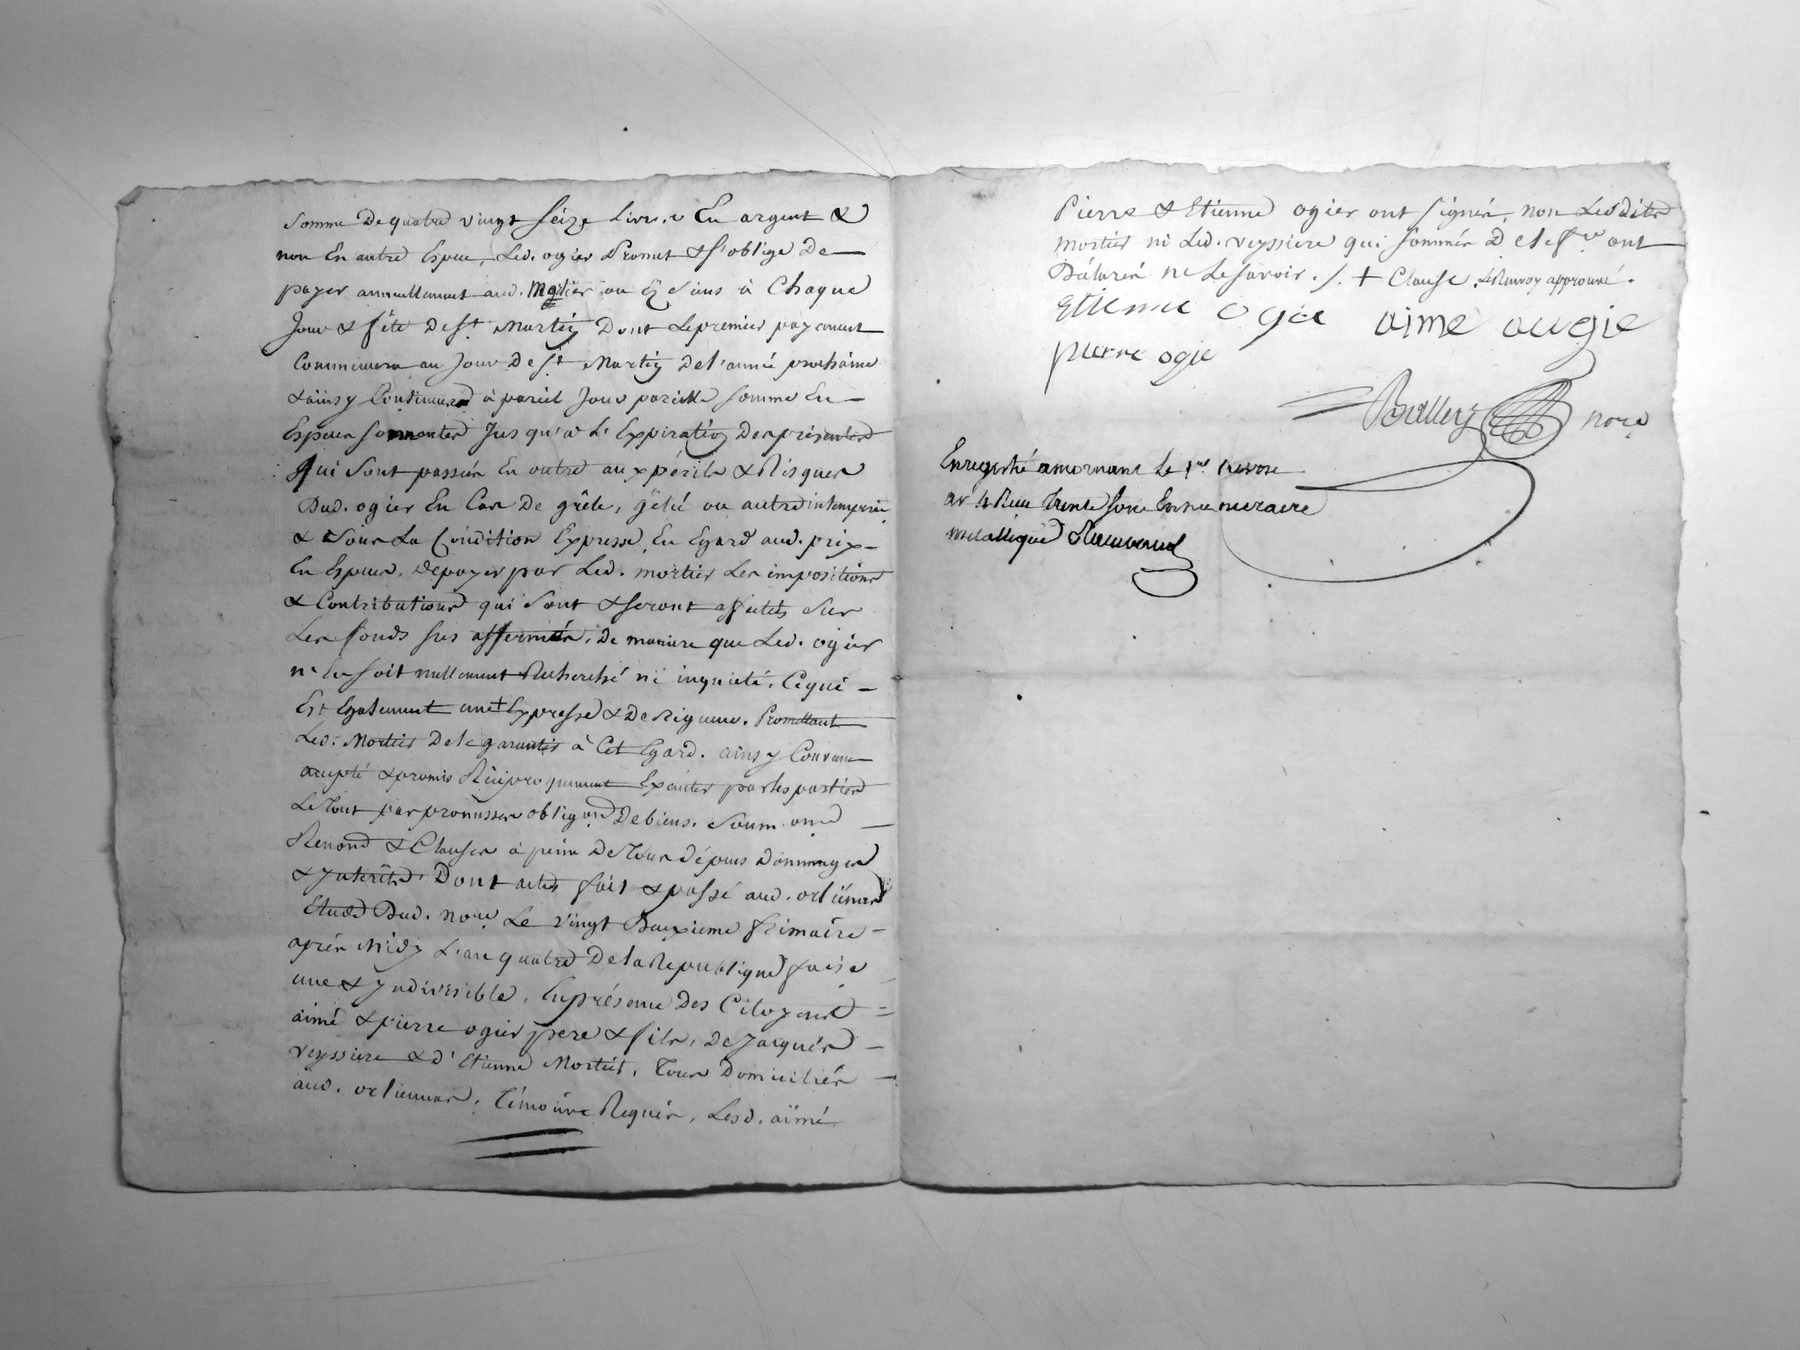 somme De quatre vingt seize livres En argent &
non En autre Espece, Led. ogier Promet & s'oblige De
payer annuellement aud. Mortier ou Es siens à Chaque
Jour & fête De st Martin Dont Le premier payement
Commencera au Jour De st Martin De l'année prochaine
& ainsy Continuera à pareil Jour pareille somme En
Especes sonnantes Jusqu'a L'Expiration Des présentes
Qui sont passées En outre aux périls & Risques
Dud. ogier En Cas De grêle, gélée ou autre intemperie
& sous La Condition Expresse, Eu Egard aud. prix
En Especes, De payer par Led. mortier Les impositions
& Contributions qui sont & seront affectés sur
Les fonds sus affermés, De maniere que Led. ogier
n'En soit nullement Recherché ni inquieté, Ce qui
Est Egalement une + Expresse & De Rigueur. Promettant
Led. Mortier De le garantir à Cet Egard. ainsy Convenu
accepté & promis Réciproquement Exécuter par les parties
Le Tout par promesses obligaons De biens, soum.ons
Renonc & Clauses à peine De Tous dépens Dommages
& Intérêts Dont acte, fait & passé aud. orliénas
Etude Dud. nore Le vingt Deuxieme frimaire
après Midy L'an quatre De la Republique francaise
une & Indivisible, En présence Des Citoyens
aimé & pierre ogier pere & fils, De Jacques
veyssiere & d'Etienne Mortier, Tous Domiciliés
aud. orliennas, Témoins Requis, Lesd. aimé
Pierre & Etienne ogier ont signé, non Lesdits
mortier ni Led. veyssiere qui sommés De le fre ont
Déclaré ne Le savoir. /. + Clause, Le Renvoy approuvé.
Etienne Ogie aime augie
pierre ogie
nore
Enregistré a mornant Le 1er nivose
an 4 Recu Trente sous En numeraire
metallique